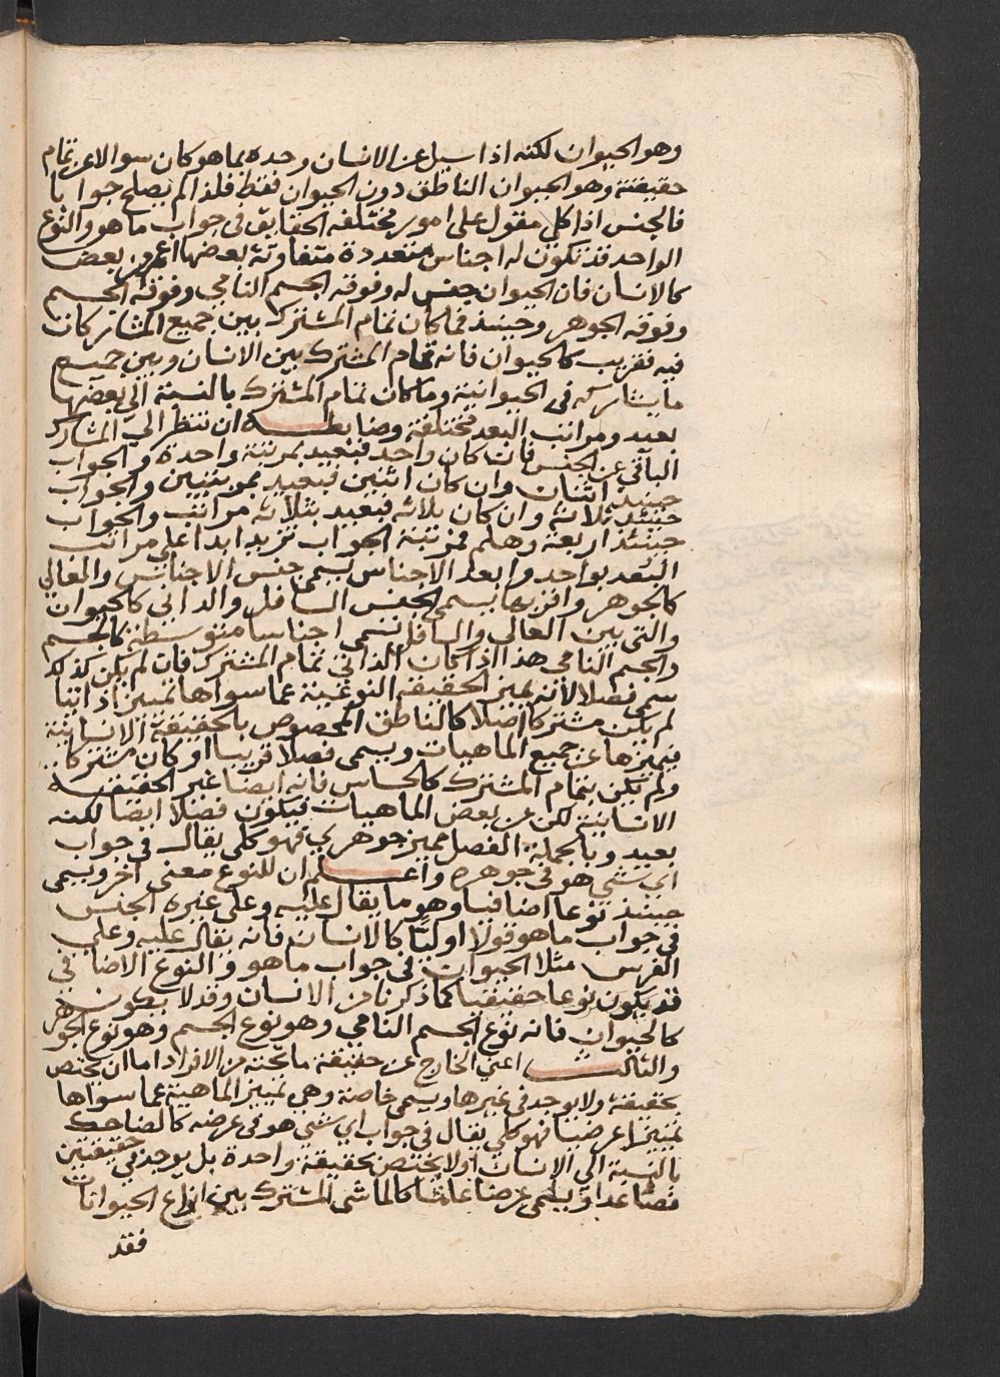 وهو الحيوان لكنه اذا سيل عن الانسان وحده بما هو كان سوالا عن تمام
حقيقته وهو الحيوان الناطق دون الحيوان فقط فلذا لم يصلح جوابا
فالجنس اذا كلي مقول على امور مختلفه الحقايق في جواب ما هو والنوع
الواحد قد تكون له اجناس متعددة متفاوتة بعضها اعم من بعض
كالانسان فان الحيوان جنس له وفوقه الجسم النامي وفوقه الجسم
وفوقه الجوهر وحينئذ فما كان تمام المشترك بين جميع المشاركات
فيه فقريب كالحيوان فانه تمام المشترك بين الانسان وبين جميع
ما يشاركه في الحيوانية وما كان تمام المشترك بالنسبة الي بعضها
بعيد ومراتب البعد مختلفة وضابطه ان تنظر الي المشارك
الباقي عن الجنس فان كان واحد فبعيد بمرتبة واحدة والجواب
حينئذ اثنان وان كان اثنين فبعيد بمرتبتين والجواب
حينئذ ثلاثة وان كان ثلاثه فبعيد بثلاثة مراتب والجواب
حينئذ اربعة وهلم فمرتبة الجواب تزيد ابدا على مراتب
البعد بواحد وابعد الاجناس يسمى جنس الاجناس والعالي
كالجوهر واقربها يسمى الجنس السافل والداني كالحيوان
والتي بين العالي والسافل تسمى اجناسا متوسطة كالجسم
والجسم النامي هذا اذا كان الذاتي تمام المشترك فان لم يكن كذلك
سمي فصلا لانه يميز الحقيقه النوعية عما سواها تمييزا ذاتيا
لم يكن مشتركا اصلا كالناطق المخصوص بالحقيقة الانسانية
فيميزها عن جميع الماهيات ويسمى فصلا قريبا او كان مشتركا
ولم يكن بتمام المشترك كالحساس فانه ايضا غير الحقيقه
الانسانية لكن عن بعض الماهيات فيكون فصلا ايضا لكنه
بعيد وبالجملة الفصل مميز جوهري فهو كلي يقال في جواب
اي شي هو في جوهره واعلم ان للنوع معنى اخر ويسمى
حينئذ نوعا اضافيا وهو ما يقال عليه وعلى غيره الجنس
في جواب ما هو قولا اوليا كالانسان فانه يقال عليه وعلى
الفرس مثلا الحيوان في جواب ما هو والنوع الاضافي
قد يكون نوعا حقيقيا كما ذكرنا من الانسان وقد لا يكون
كالحيوان فانه نوع الجسم النامي وهو نوع الجسم وهو نوع الجوهر
والثالث اعني الخارج عن حقيقة ما تحته من الافراد اما ان يختص
بحقيقة ولا يوجد في غيرها ويسمى خاصة وهي تمييز الماهية عما سواها
تمييزا عرضيا فهو كلي يقال في جواب اي شي هو في عرضه كالضاحك
بالنسبة الي الانسان اولا يختص بحقيقة واحدة بل يوجد في حقيقتين
فصاعدا ويسمى عرضا عاما كالماشي المشترك بين انواع الحيوانات
فقد